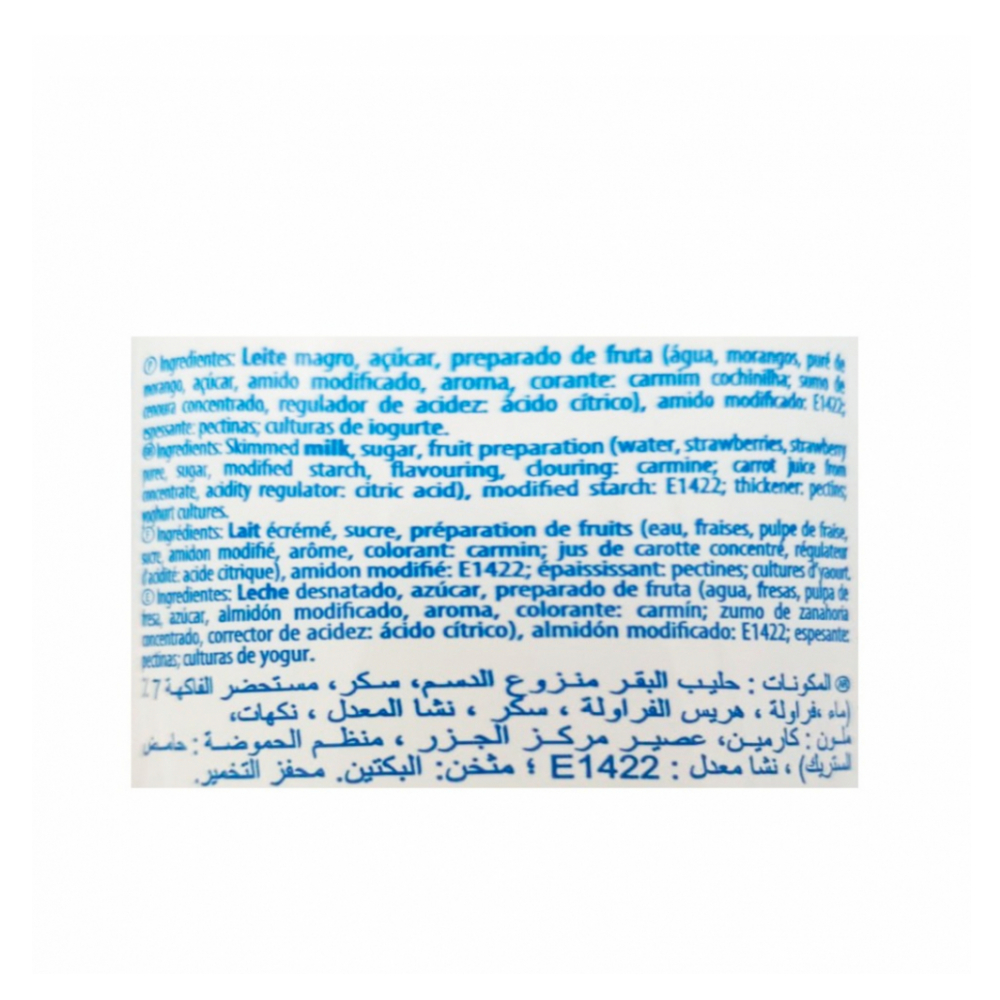 Ⓟ Ingredientes: Leite magro, açúcar, preparado de fruta (água, morangos, puré de
morango, açúcar, amido modificado, aroma, corante: carmim cochinilha; sumo de
cenoura concentrado, regulador de acidez: ácido cítrico), amido modificado: E1422;
espessante: pectinas; culturas de iogurte.
Ingredients: Skimmed milk, sugar, fruit preparation (water, strawberries, strawberry
puree, sugar, modified starch, flavouring, clouring: carmine; carrot juice from
concentrate, acidity regulator: citric acid), modified starch: E1422; thickener: pectins;
yoghurt cultures.
Ⓕ Ingrédients: Lait écrémé, sucre, préparation de fruits (eau, fraises, pulpe de fraise,
sucre, amidon modifié, arôme, colorant: carmin; jus de carotte concentré, régulateur
d'acidité: acide citrique), amidon modifié: E1422; épaississant: pectines; cultures d'yaourt.
Ⓔ Ingredientes: Leche desnatado, azúcar, preparado de fruta (agua, fresas, pulpa de
fresa, azúcar, almidón modificado, aroma, colorante: carmín; zumo de zanahoria
concentrado, corrector de acidez: ácido cítrico), almidón modificado: E1422; espesante:
pectinas; culturas de yogur.
المكونات : حليب البقر منزوع الدسم، سكر، مستحضر الفاكهة
(ماء ،فراولة ، هريس الفراولة ، سكر ، نشا المعدل ، نكهات،
ملون : كارمين، عصير مركز الجزر ، منظم الحموضة : حامض
الستريك) ، نشا معدل : E1422 ؛ مثخن: البكتين. محفز التخمير.